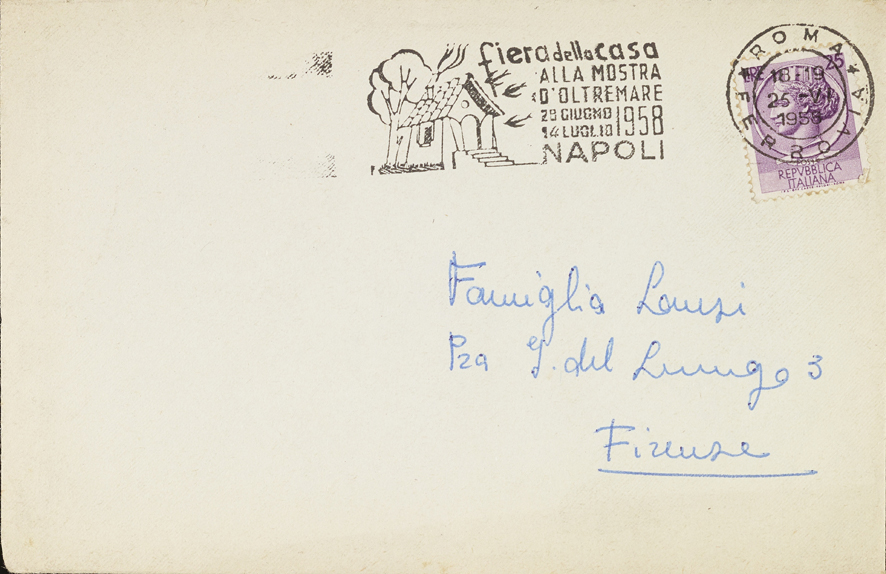 fiera della casa
ALLA MOSTRA
D'OLTREMARE
29 GIUGNO
14 LUGLIO 1958
NAPOLI
ROMA FERROVIA
18-19
25 -VI
1958
LIRE 25
REPVBBLICA
ITALIANA
Famiglia Lanzi
Pza G. del Lungo 3
Firenze